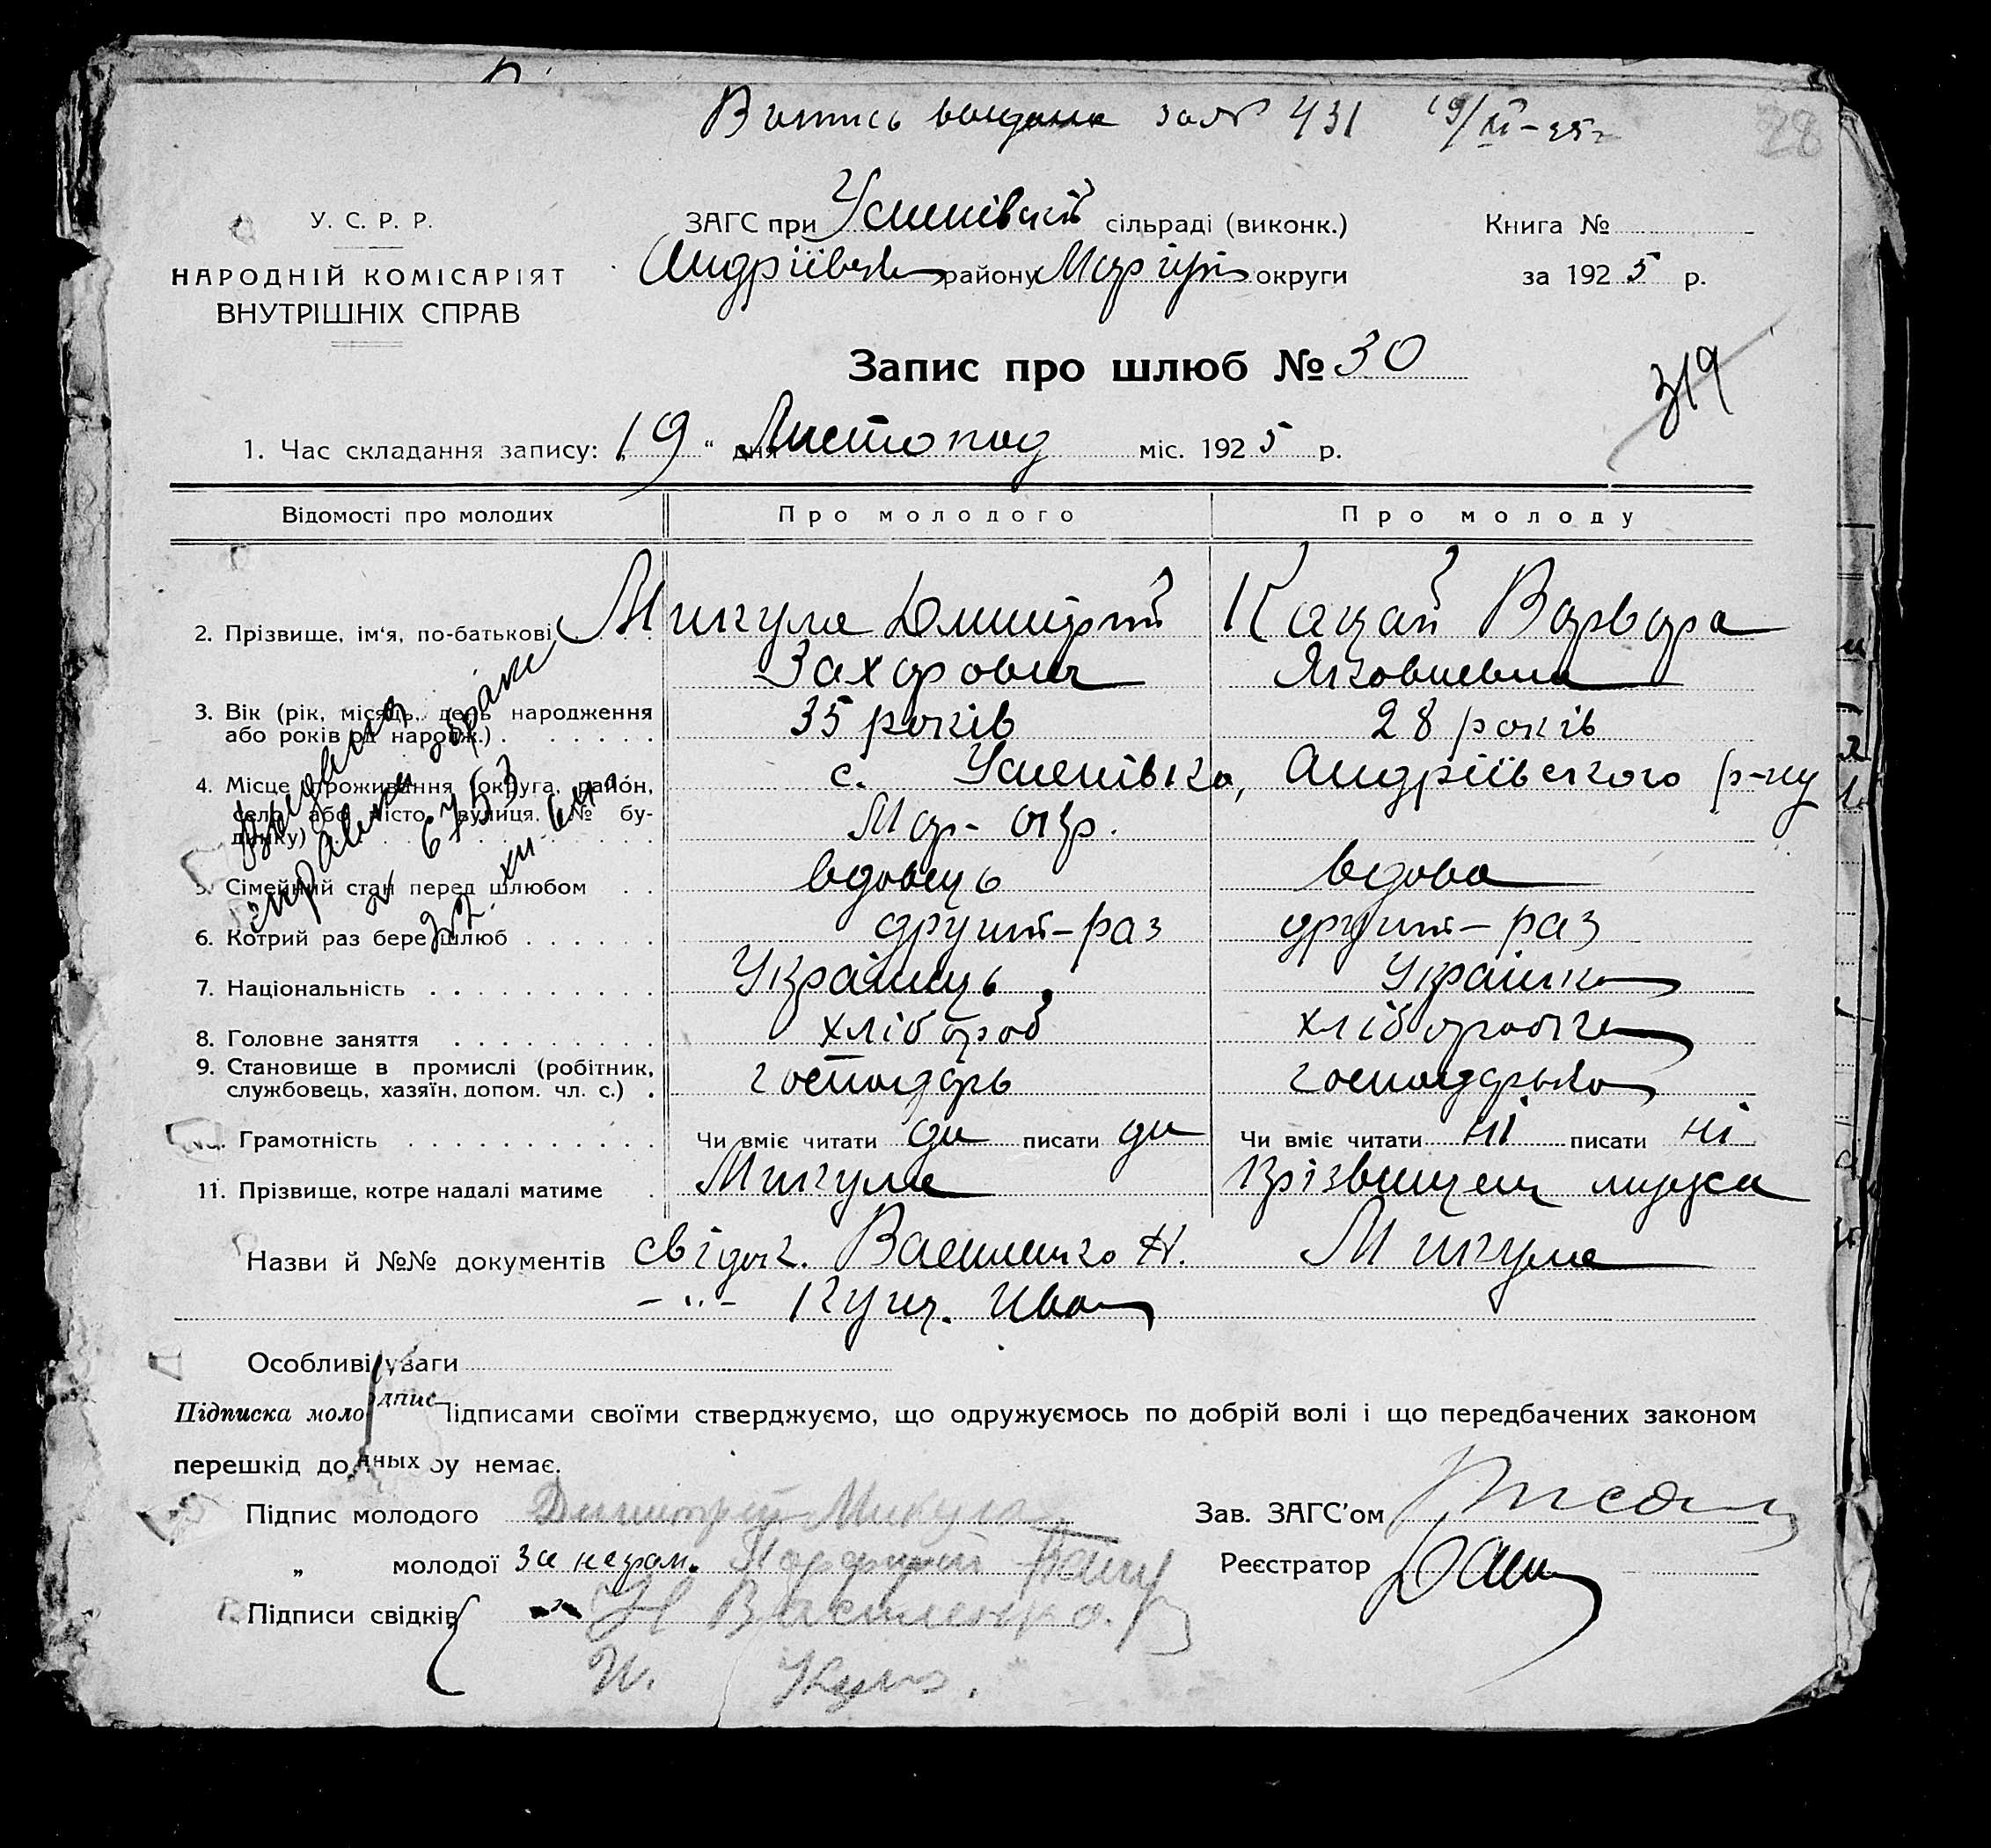 Витись видана за № 431 19/XI–25 г
28
У. С. Р. Р.
НАРОДНІЙ КОМІСАРІЯТ
ВНУТРІШНІХ СПРАВ
ЗАГС при Успенівській сільраді (виконк.)
Андріївськ району Маріуп округи
Книга №
за 1925 р.
Запис про шлюб № 30
319
1. Час складання запису: „19“ дня Листопад міс. 1925 р.
Відомості про молодих Про молодого Про молоду
2. Прізвище, ім‘я, по-батькові Микула Дмитрій Кацай Варвара
Захарович Яковлевна
3. Вік (рік, місяць, день народження
або років од народж.) 35 років 28 років
4. Місце проживання (округа, район, с. Успенівка, Андріївського р-ну
село або місто, вулиця, № бу-
динку) Мар- окр.
5. Сімейний стан перед шлюбом вдовець вдова
6. Котрий раз бере шлюб другий–раз другий–раз
7. Національність Українець Українка
8. Головне заняття хлібороб хліборобка
9. Становище в промислі (робітник,
службовець, хазяїн, допом. чл. с.) господарь господарька
Грамотність Чи вміє читати да писати да Чи вміє читати ні писати ні
11. Прізвище, котре надалі матиме Микула прізвищем мужа
Назви й №№ документів свідок. Василенко Н. Микула
– „ – Куц. Иван
Выдана
справка о браке
№ 6753
22. XII-64 г
Особливі уваги
Підписка моло дпис Підписами своїми стверджуємо, що одружуємось по добрій волі і що передбачених законом
перешкід до нных бу немає.
Підпис молодого Димитрій Микула
Зав. ЗАГС’ом
„ молодої За неграм.
Реєстратор
Підписи свідків Н Василенко.
И.